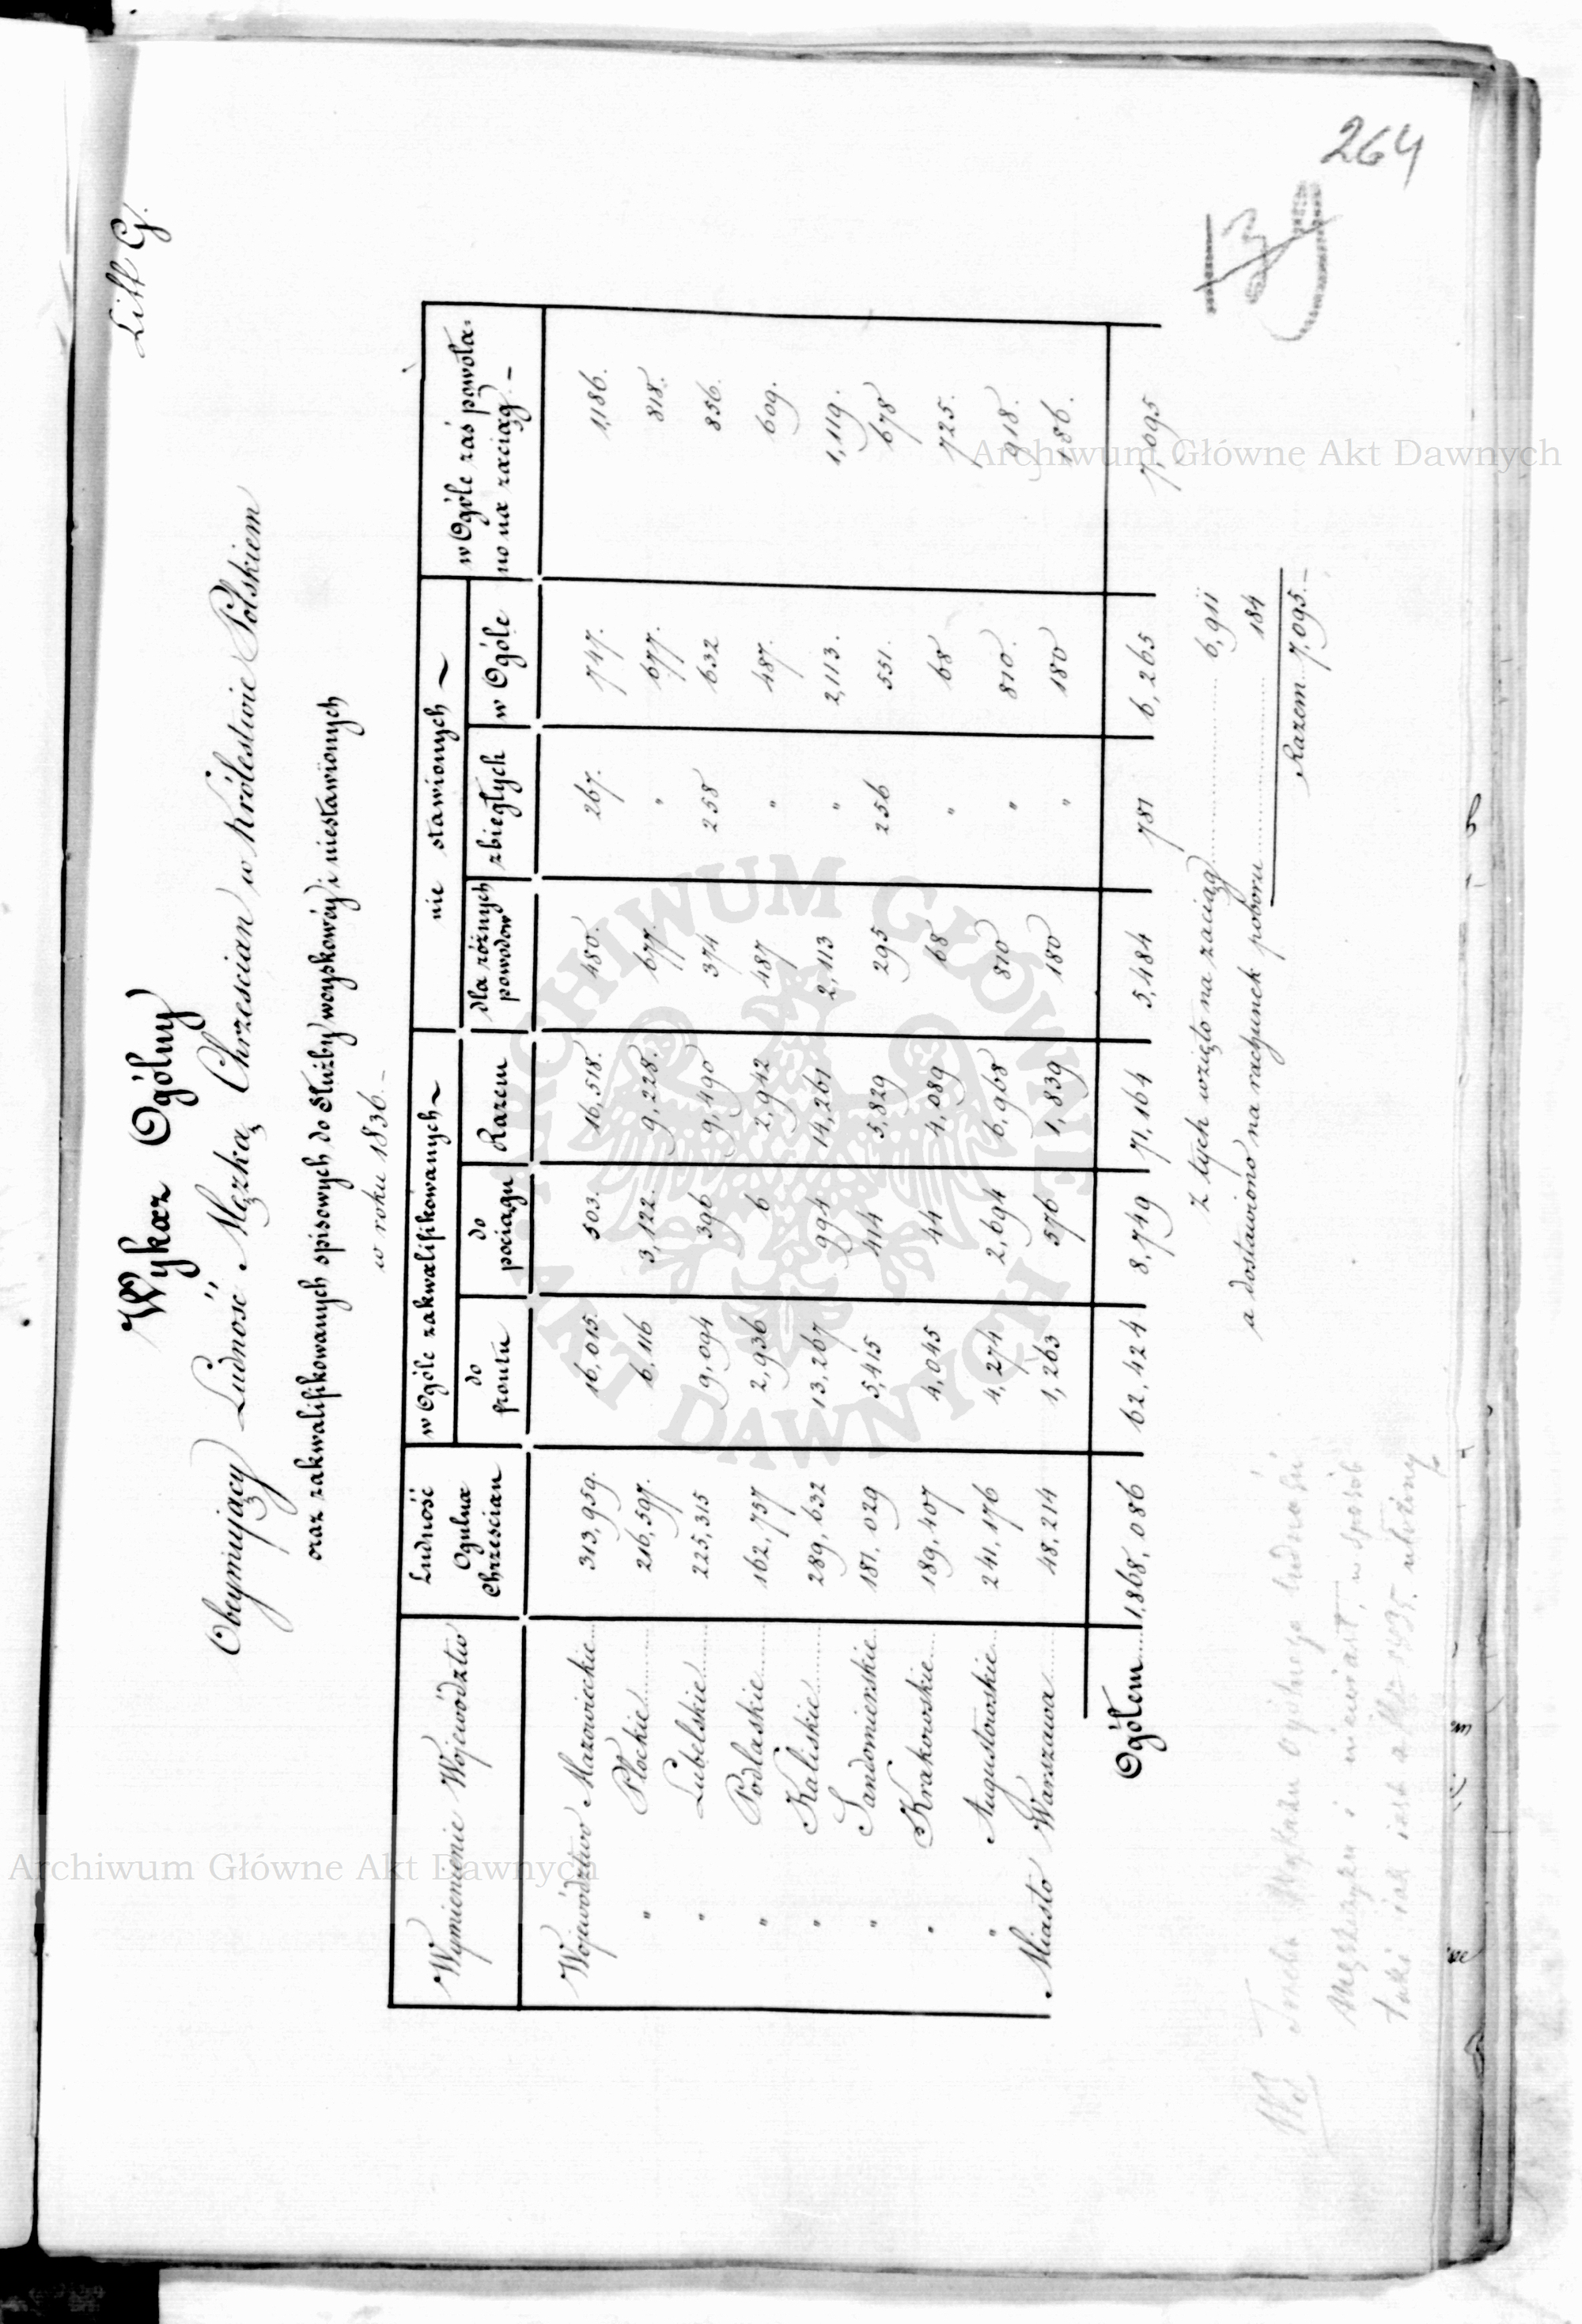 Litt G.
264
Wykaz Ogólny
Obeymujący Ludność Męzką Chrzescian w Królestwie Polskiem
oraz zakwalifikowanych spisowych do Służby woyskowéy i niestawionych
w roku 1836.–
Wymienienie Województw | Ludność Ogulna Chrzescian | w Ogóle zakwalifikowanych | nie stawionych | w Ogóle zaś powoła: no na zaciąg.–
do frontu | do pociągu | Razem | dla różnych powodow | zbiegłych | w Ogóle
Województwo Mazowieckie | 313,959. | 16,015. | 503. | 16,518. | 480. | 267. | 747. | 1,186.
" Płockie | 216,597. | 6,116 | 3,122. | 9,228. | 677. | " | 677. | 818.
" Lubelskie | 225,315 | 9,094 | 396 | 9,490 | 374 | 258 | 632 | 856.
" Podlaskie | 162,757 | 2,936 | 6 | 2,942 | 487 | " | 487. | 609.
" Kaliskie | 289,632 | 13,267 | 994 | 14,261 | 2,113 | " | 2,113. | 1,119.
" Sandomierskie | 181,029 | 5,415 | 414 | 5,829 | 295 | 256 | 551. | 678
" Krakowskie | 189,407 | 4,045 | 44 | 4,089 | 68 | " | 68 | 725.
" Augustowskie | 241,176 | 4,274 | 2,694 | 6,968 | 810 | " | 810. | 918.
Miasto Warszawa | 48,214 | 1,263 | 576 | 1,839 | 180 | " | 180 | 186.
Ogółem | 1,868,086 | 62,424 | 8,749 | 71,164 | 5,484 | 781 | 6,265 | 7,095
Z tych wzięto na zaciąg 6,911
a dostawiono na rachunek poboru 184
Razem 7,095.–
Wykazu ogólnego ludności
mężczyzn i niewiast, w sposób
taki iak iest 1835. ułożony
Archiwum Główne Akt Dawnych
Archiwum Główne Akt Dawnych
ARCHIWUM GŁÓWNE AKT DAWNYCH